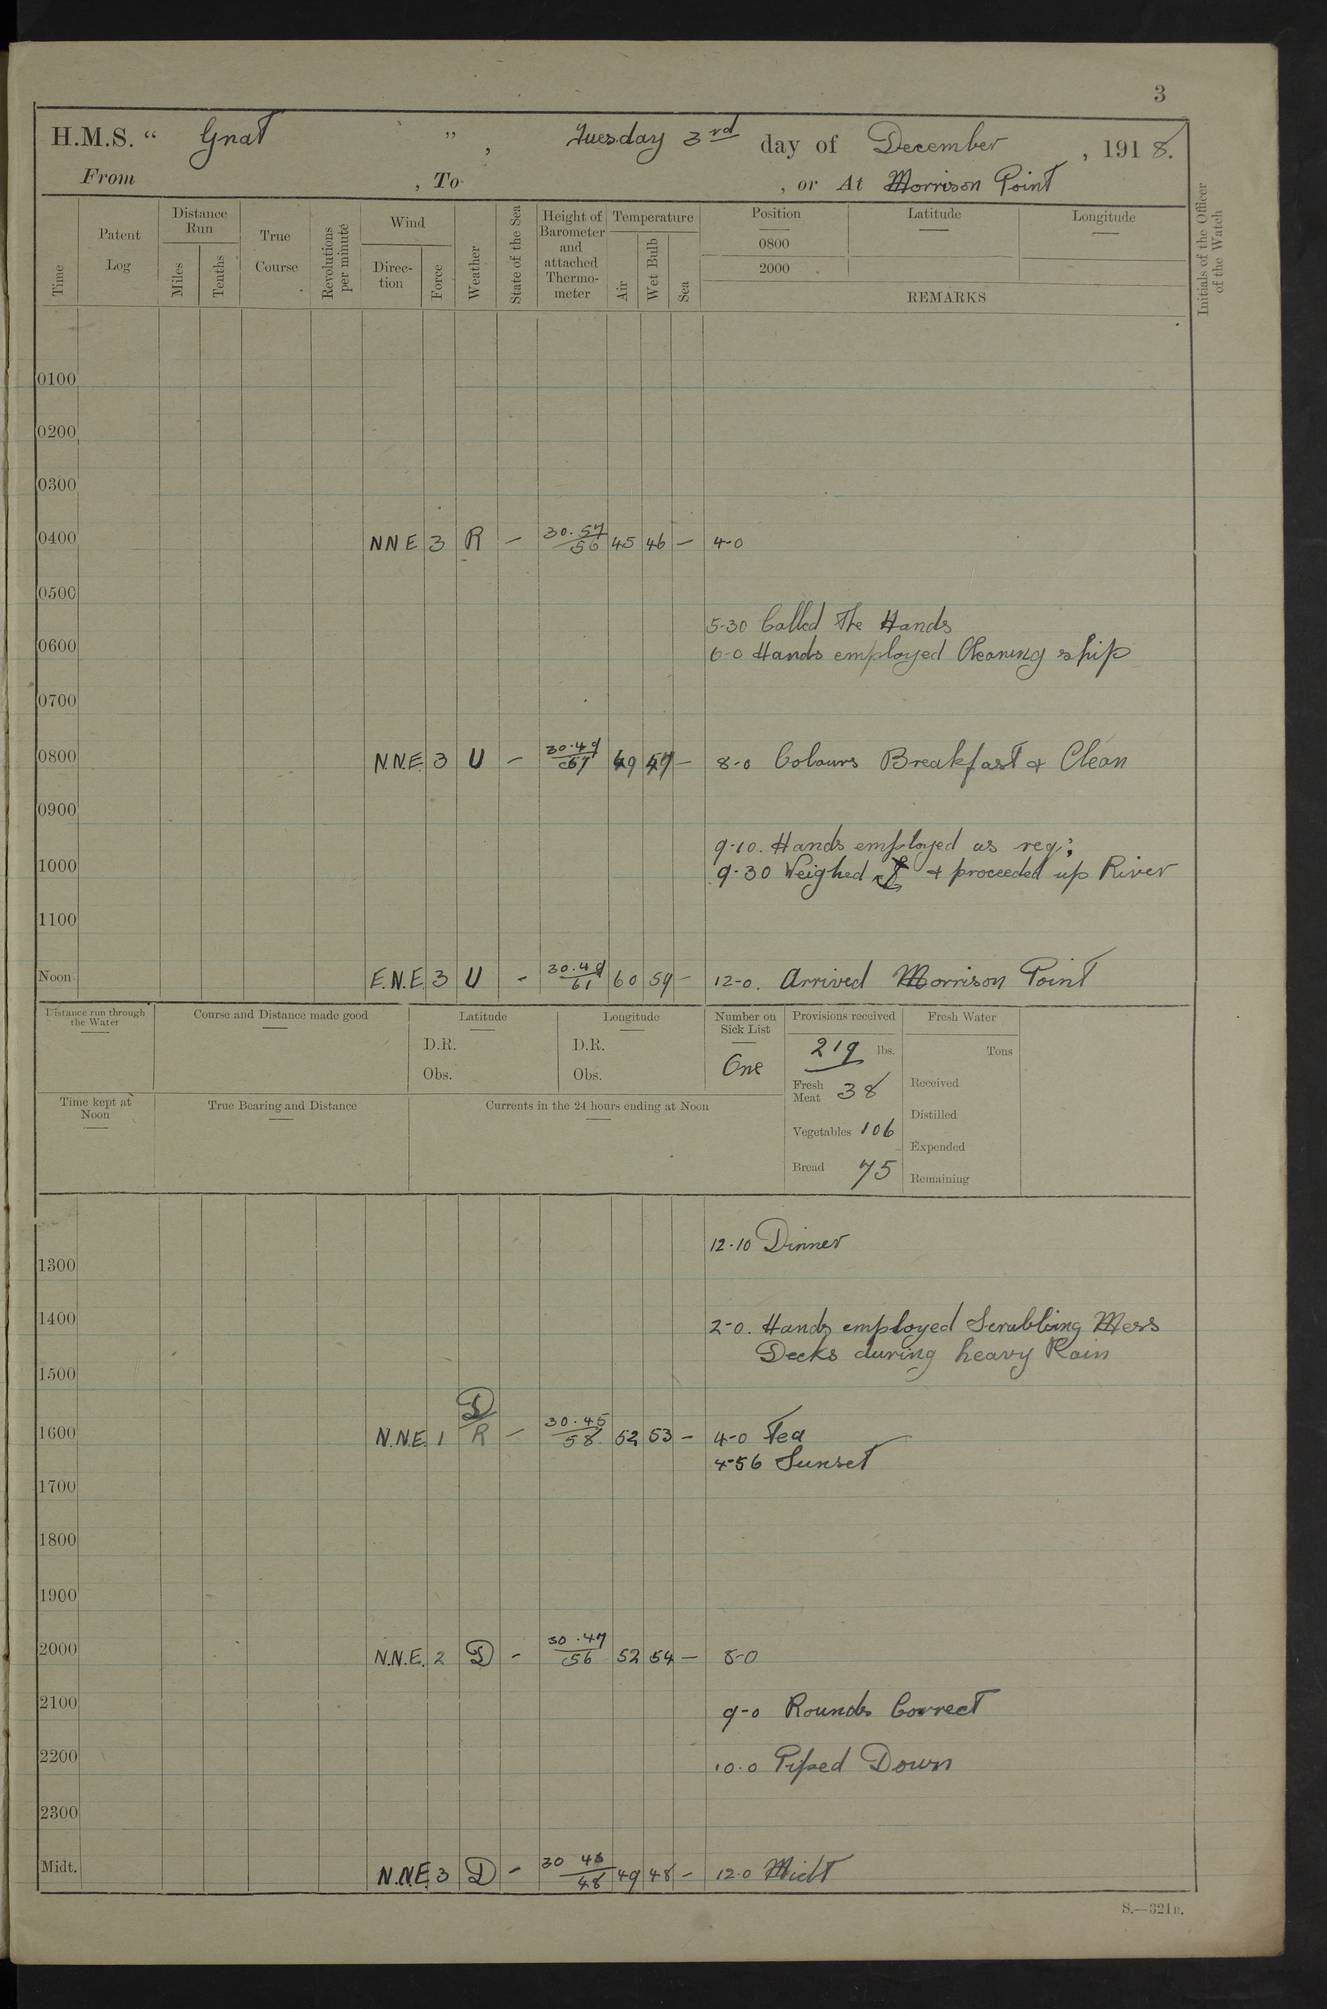 3
H.M.S. “ Gnat ”, Tuesday 3rd day of December, 1918.
From , To , or At Morrison Point
Time
Patent Log
Distance Run
Miles
Tenths
True Course
Revolutions per minute
Wind
Direc-tion
Force
Weather
State of the Sea
Height of Barometer and attached Thermo-meter
Temperature
Air
Wet Bulb
Sea
Position
0800
2000
Latitude
Longitude
REMARKS
Initials of the Officer of the Watch
0100
0200
0300
0400 NNE 3 R – 30.57/56 45 46 – 4-0
0500
5-30 Called The Hands
0600
6-0 Hands employed Cleaning ship
0700
0800 N.N.E. 3 U – 30.49/57 49 47 – 8-0 Colours Breakfast & Clean
0900
9-10. Hands employed as req;
1000
9-30 Weighed ⚓ & proceeded up River
1100
Noon E.N.E. 3 U - 30.49/61 60 59 – 12-0. Arrived Morrison Point
Distance run through the Water
Course and Distance made good
Latitude
D.R.
Obs.
Longitude
D.R.
Obs.
Number on Sick List
One
Provisions received
219 lbs.
Fresh Meat 38
Vegetables 106
Bread 75
Fresh Water
Tons
Received
Distilled
Expended
Remaining
Time kept at Noon
True Bearing and Distance
Currents in the 24 hours ending at Noon
12-10 Dinner
1300
1400
2-0. Hands employed Scrubbing Mess
Decks during heavy Rain
1500
1600 N.N.E. 1 D/R – 30.45/58 52 53 – 4-0 Tea
4-56 Sunset
1700
1800
1900
2000 N.N.E. 2 D - 30.47/56 52 54 – 8-0
2100
9-0 Rounds Correct
2200
10.0 Piped Down
2300
Midt. N.N.E. 3 D – 30 46/48 49 48 – 12.0 Midt
S.—321B.